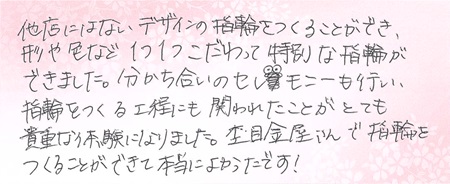 他店にはないデザインの指輪をつくることができ、
形や色など1つ1つこだわって特別な指輪が
できました。分かち合いのセレモニーも行い、
指輪をつくる工程にも関われたことがとても
貴重な体験になりました。杢目金屋さんで指輪を
つくることができて本当によかったです!